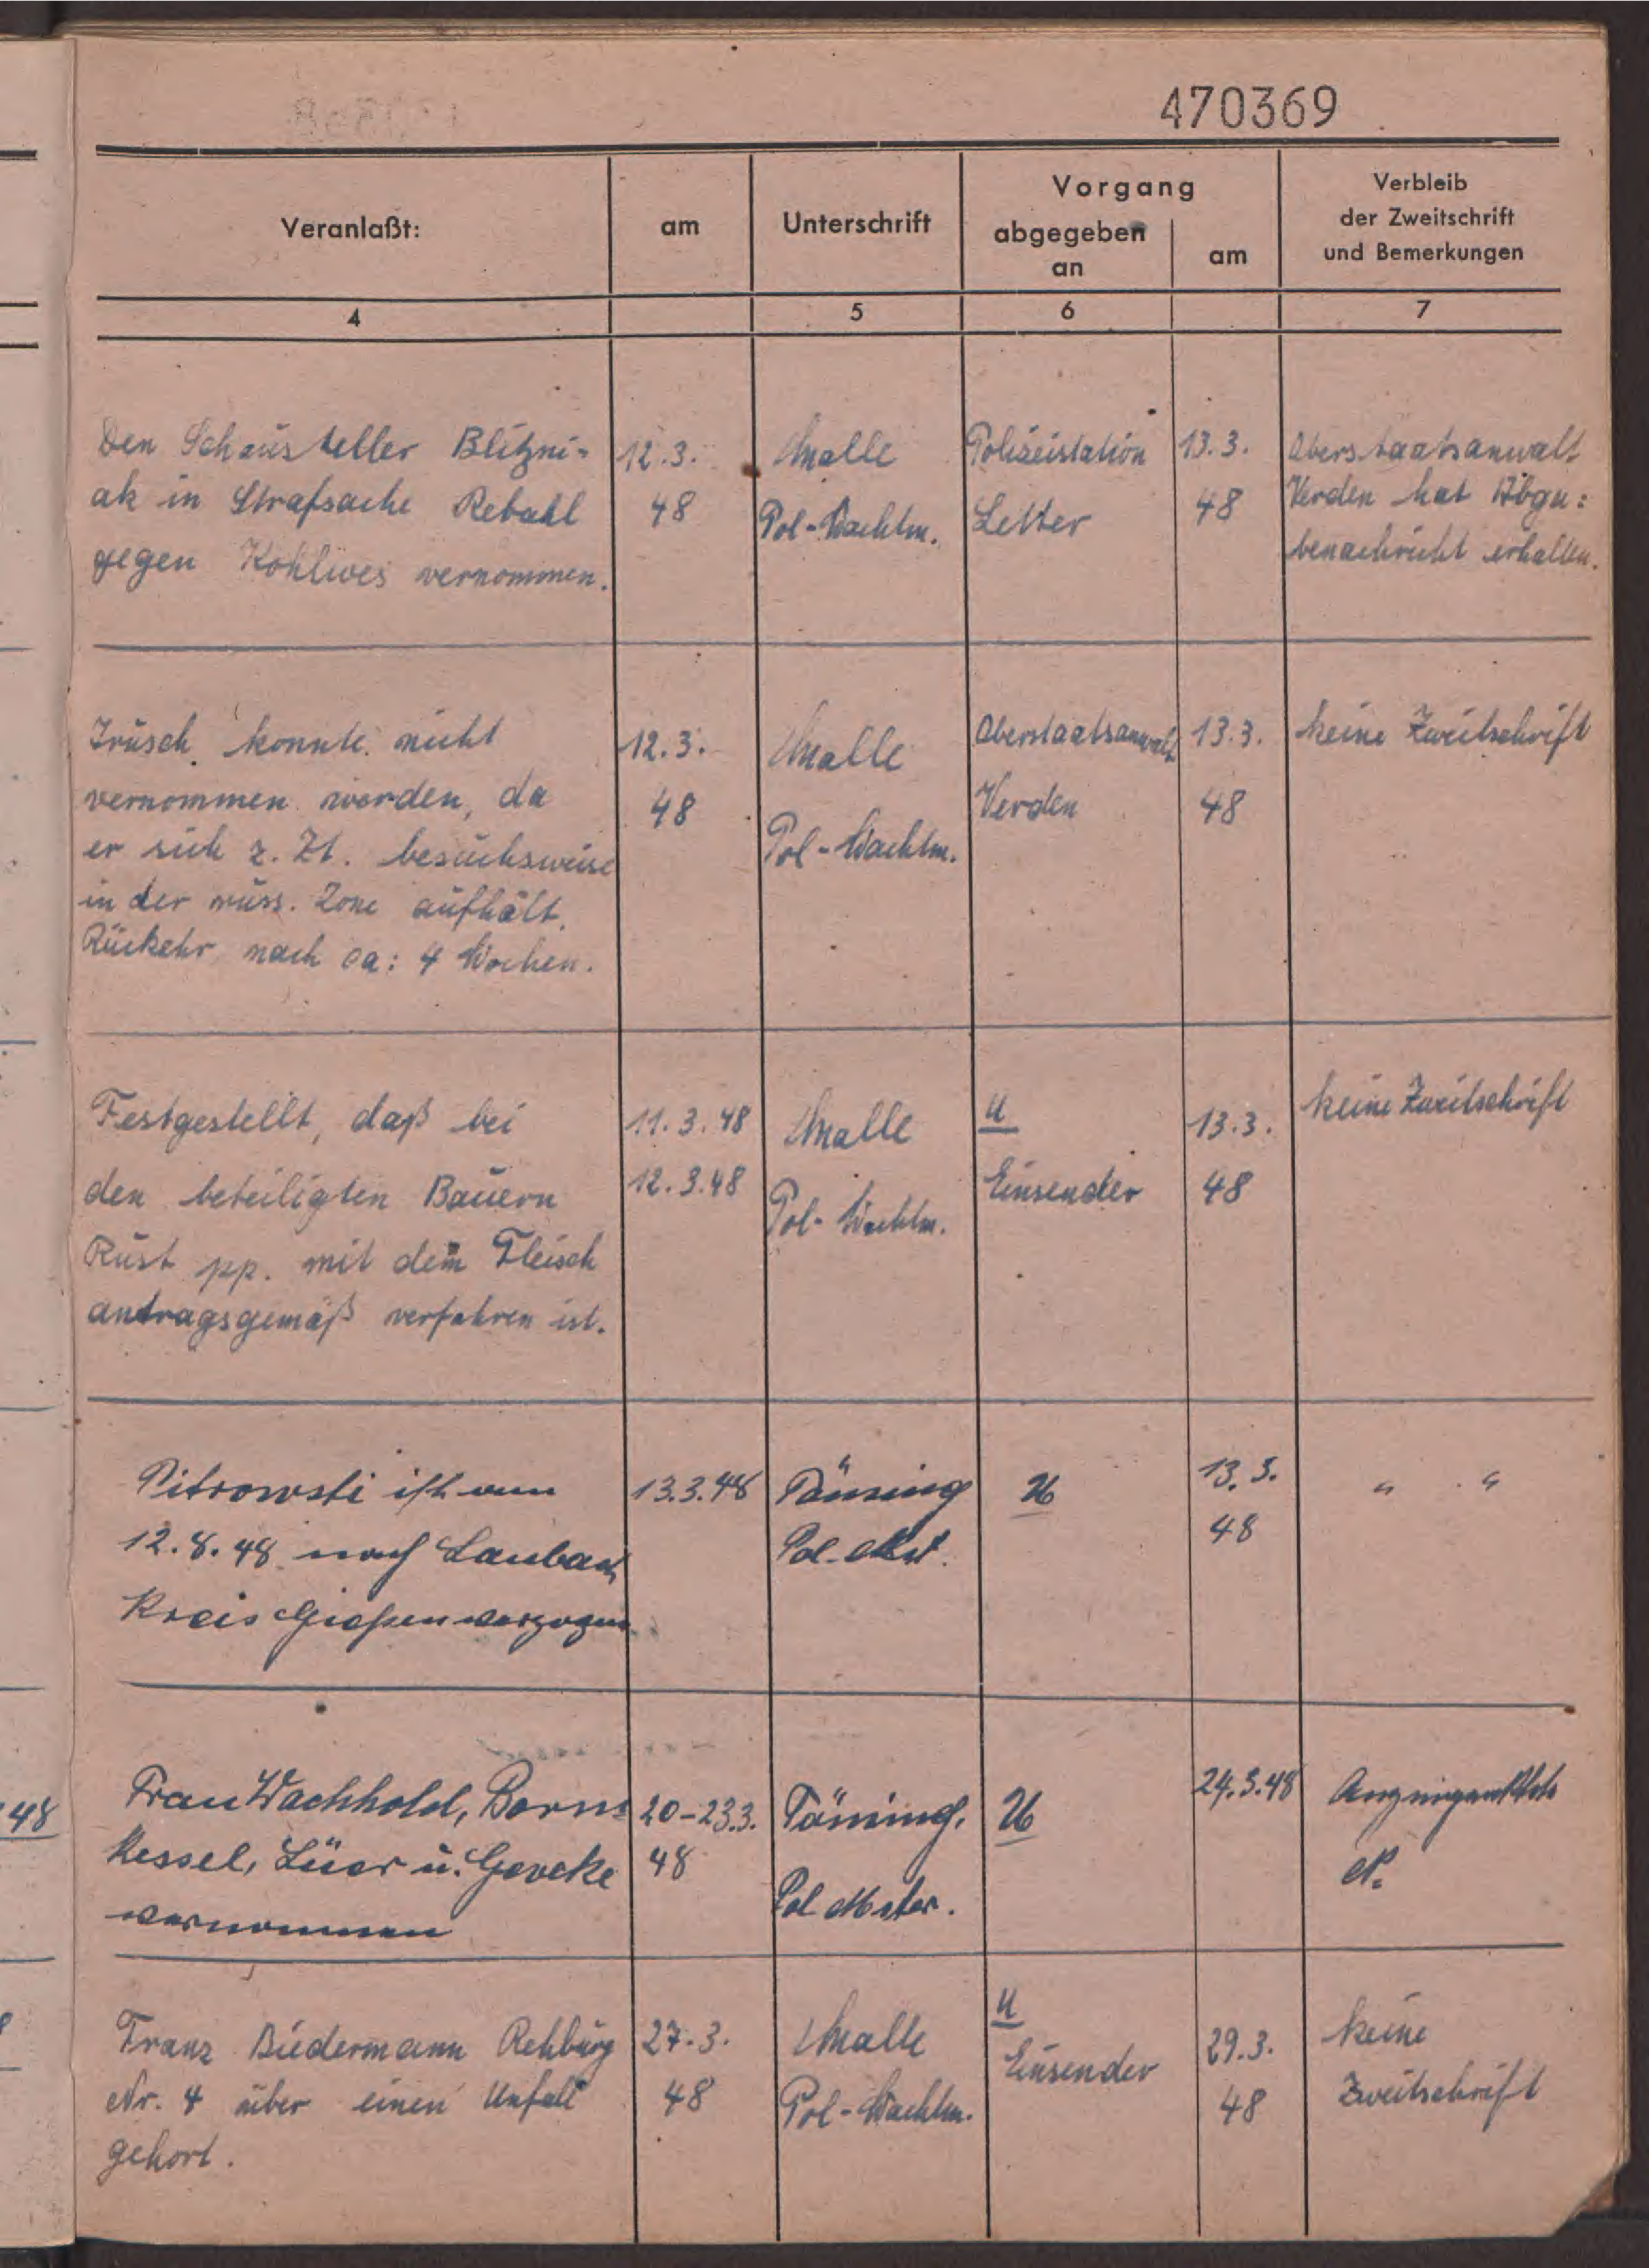 470369
Veranlaßt:
am
Unterschrift
Vorgang
abgegeben
an
am
Verbleib
der Zweitschrift
und Bemerkungen
4
5
6
7
Den Schausteller Blitzni-
ak in Strafsache Rebahl
gegen Kohlwes vernommen.
12.3.
48
Malle
Pol-Wachtm.
Polizeistation
Letter
13.3.
48
Oberstaatsanwalt
Verden hat Abga:
benachricht erhalten.
konnte nicht
vernommen werden, da
er sich z. Zt. besuchsweise
in der russ. Zone aufhält.
Rückehr nach ca: 4 Wochen.
12.3.
48
Malle
Pol-Wachtm.
Oberstaatsanwalt
Verden
13.3.
48
keine Zweitschrift
Festgestellt, daß bei
den beteiligten Bauern
Rust pp. mit dem Fleisch
antragsgemäß verfahren ist.
11.3.48
12.3.48
Malle
Pol-Wachtm.
U
Einsender
13.3.
48
keine Zweitschrift
Pitrowski ist am
12.8.48 nach Laubach
Kreis Gießen verzogen
13.3.48
Pol. Mst.
U
13.3.
48
" "
Frau Wachhold, Born=
kessel, Lüer u. Gevcke
vernommen
20-23.3.
48
Pol Mster.
U
24.3.48
N.
Franz Biedermann Rehburg
Nr. 4 über einen Unfall
gehört.
27.3.
48
Malle
Pol-Wachtm.
U
Einsender
29.3.
48
keine
Zweitschrift
48